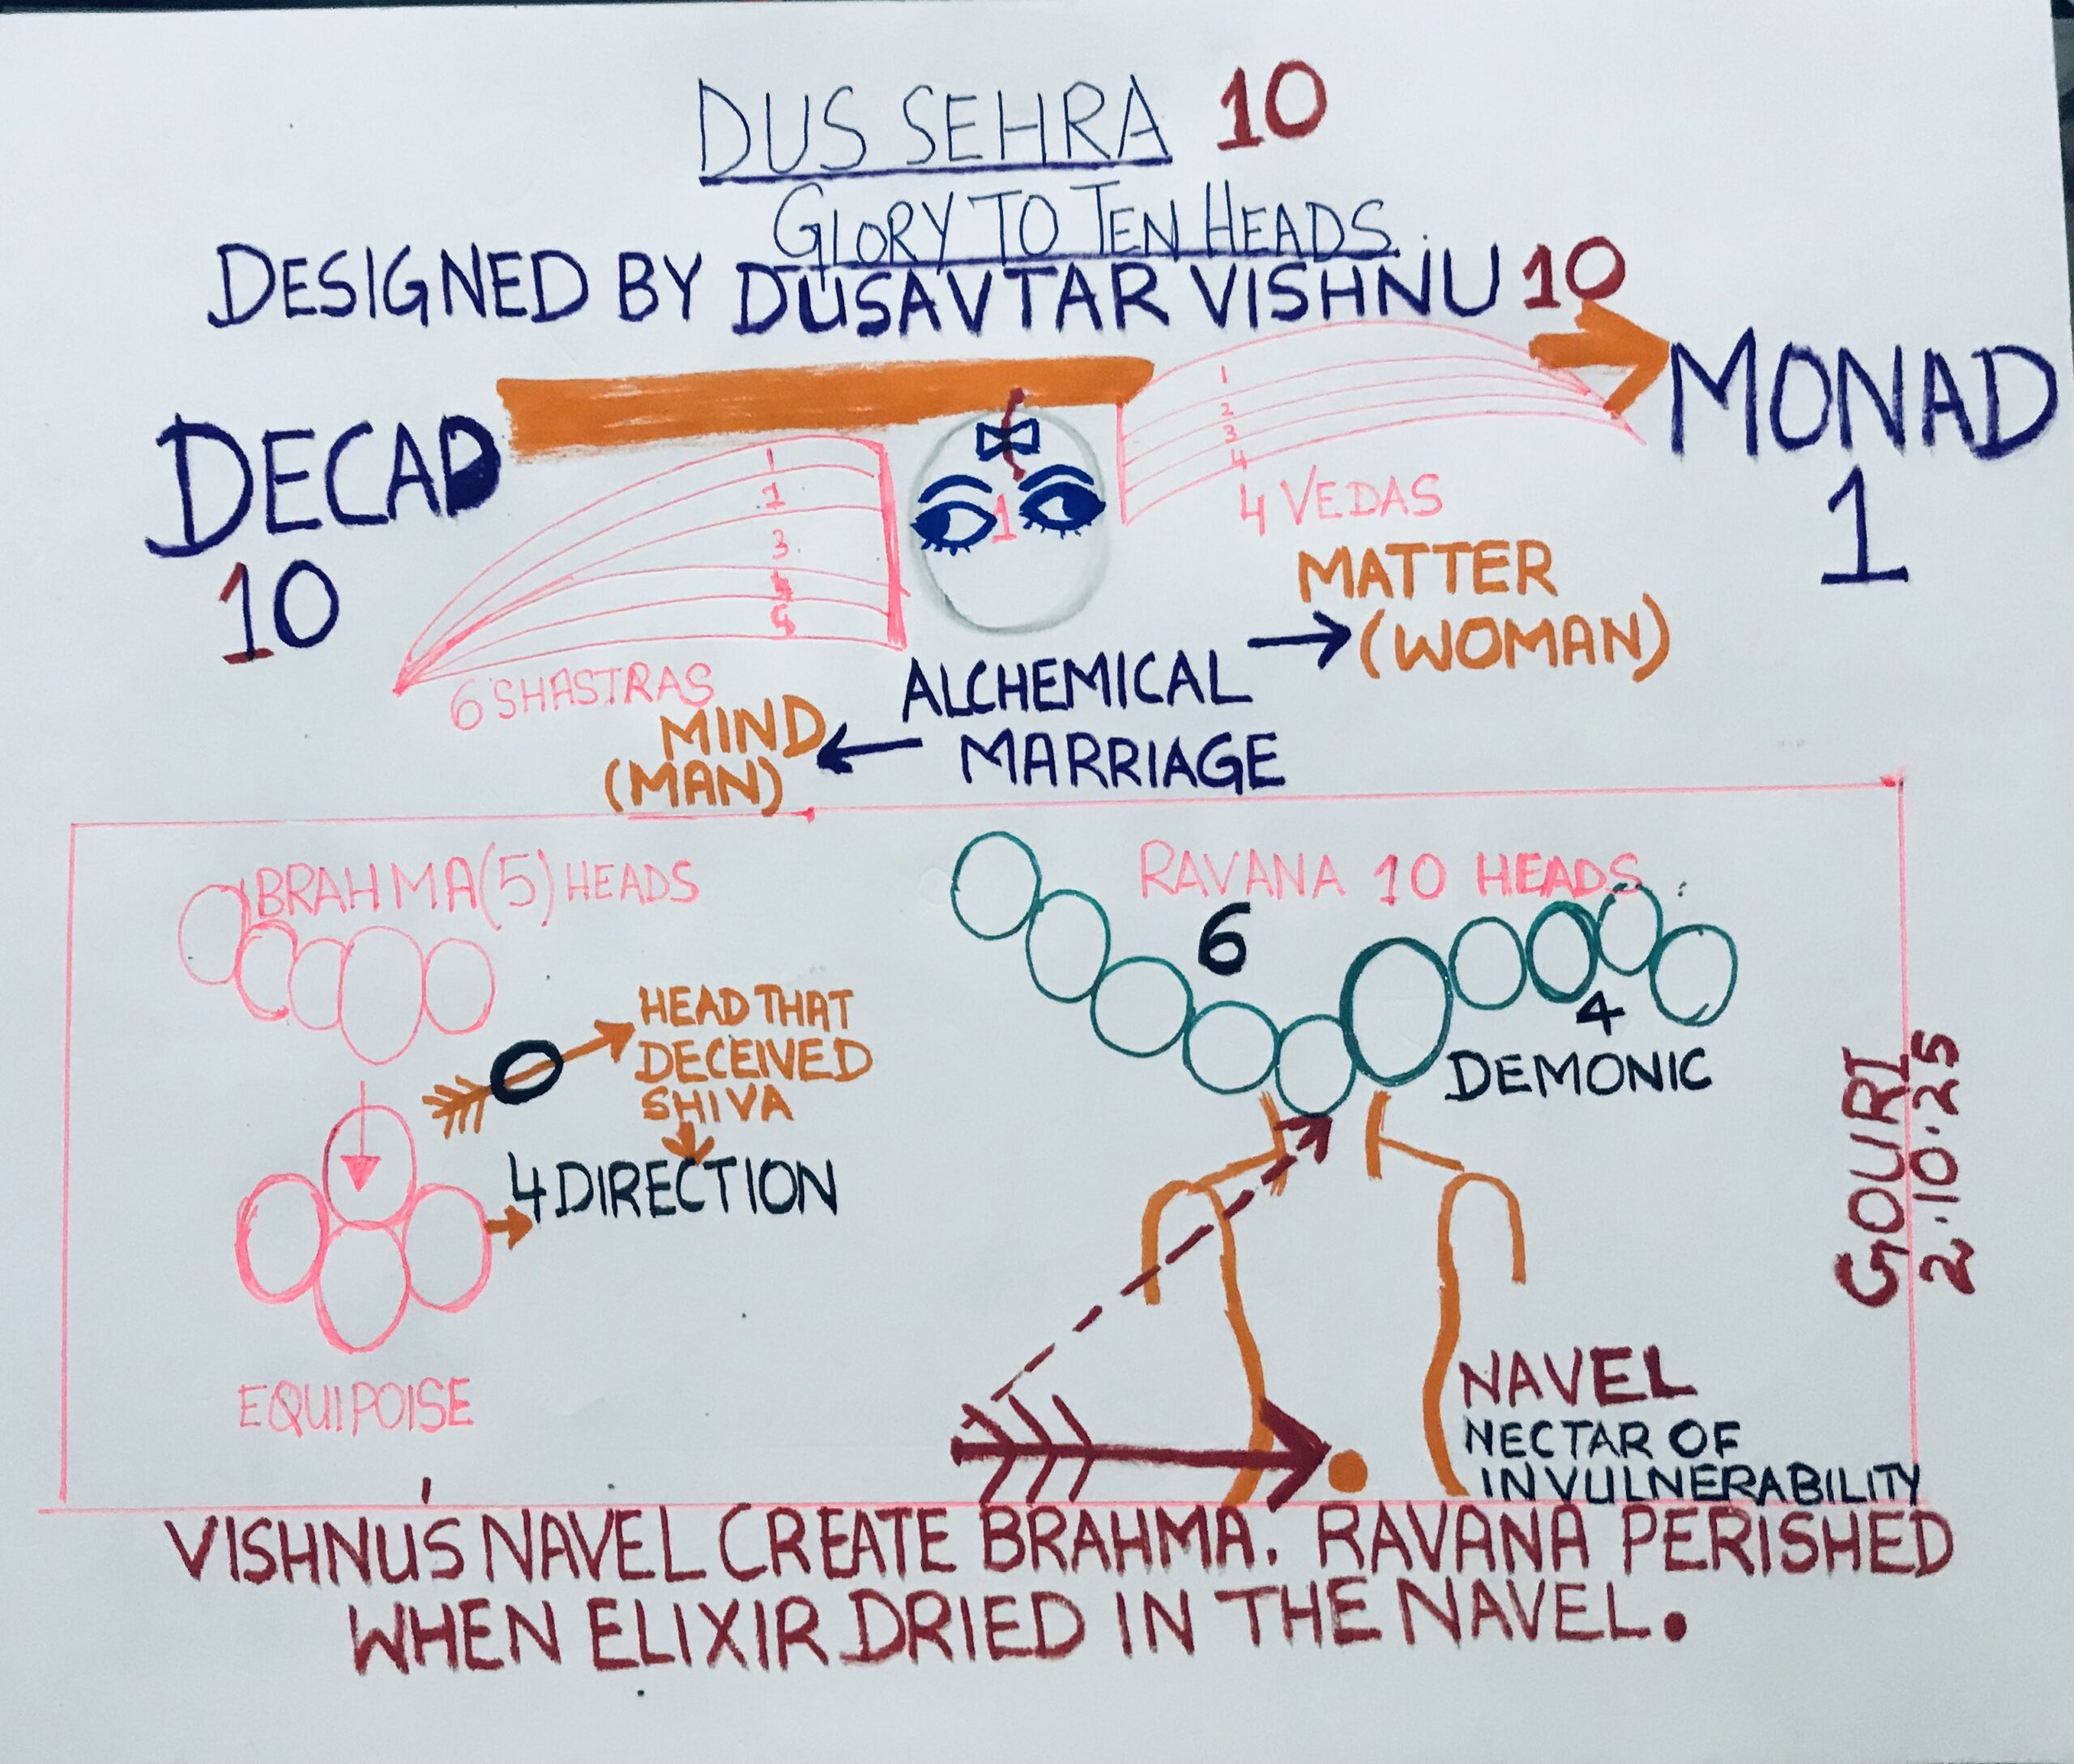 DUS SEHRA 10
GLORY TO TEN HEADS
DESIGNED BY DUSAVTAR VISHNU 10
DECAD
10
MONAD
1
1
1
3
4
5
6 SHASTRAS
1
1
2
3
4
4 VEDAS
MATTER
(WOMAN)
ALCHEMICAL
MARRIAGE
MIND
(MAN)
BRAHMA(5) HEADS
HEAD THAT
DECEIVED
SHIVA
4 DIRECTION
EQUIPOISE
RAVANA 10 HEADS
6
4
DEMONIC
NAVEL
NECTAR OF
INVULNERABILITY
GOURI
2.10.25
VISHNU'S NAVEL CREATE BRAHMA. RAVANA PERISHED
WHEN ELIXIR DRIED IN THE NAVEL.